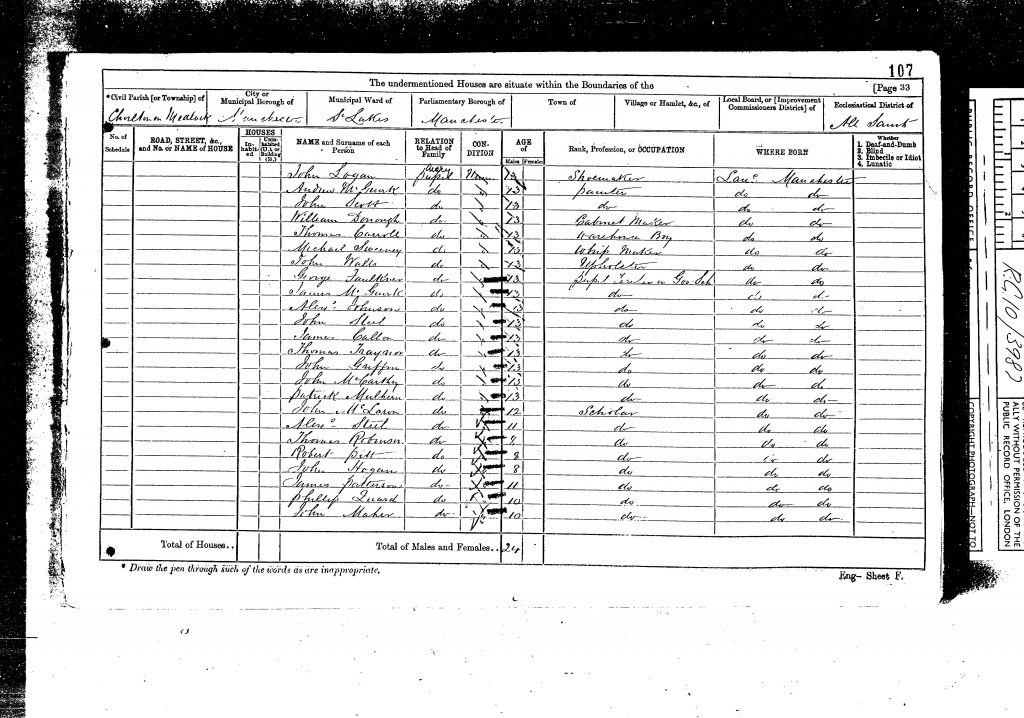 107
The undermentioned Houses are situate within the Boundaries of the
[Page 33
*Civil Parish [or Township] of
City or Municipal Borough of
Municipal Ward of
Parliamentary Borough of
Town of
Village or Hamlet, &c., of
Local Board, or [Improvement Commissioners District] of
Ecclesiastical District of
Chorlton on Medlock Manchester St Lukes Manchester All Saints
No. of Schedule
ROAD, STREET, &c., and No. or NAME of HOUSE
HOUSES
In-habited
Unin-habited (U.), or Building (B.)
NAME and Surname of each Person
RELATION to Head of Family
CON-DITION
AGE of
Males Females
Rank, Profession, or OCCUPATION
WHERE BORN
Whether
1. Deaf-and-Dumb
2. Blind
3. Imbecile or Idiot
4. Lunatic
John Logan pupil 13 Shoemaker Lanc. Manchester
Andrew McGurk do 13 painter do do
John Scott do 13 do do do
William Donough do 13 Cabinet Maker do do
Thomas Carroll do 13 Warehouse Boy do do
Michael Sweeney do 13 Whip Maker do do
John Walls do 13 Upholster do do
George Faulkner do 13 Pupil do do
James McGurk do 13 do do do
Alexr Johnson do 13 do do do
John Steel do 13 do do do
James Calton do 13 do do do
Thomas Traynor do 13 do do do
John Griffin do 13 do do do
John McCarthy do 13 do do do
Patrick Mulhern do 13 do do do
John McLaron do 12 Scholar do do
Alexr Steel do 11 do do do
Thomas Robinson do 9 do do do
Robert Pitt do 8 do do do
John Hogan do 8 do do do
James Patterson do 11 do do do
Phillip Quard do 10 do do do
John Maher do 10 do do do
Total of Houses..
Total of Males and Females.. 24
* Draw the pen through such of the words as are inappropriate.
Eng— Sheet F.
RG 10/3982
COPYRIGHT PHOTOGRAPH—NOT TO
ALLY WITHOUT PERMISSION OF THE
PUBLIC RECORD OFFICE, LONDON